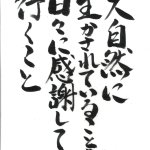 大自然に
生かされていることを
日々に感謝して
行くこと